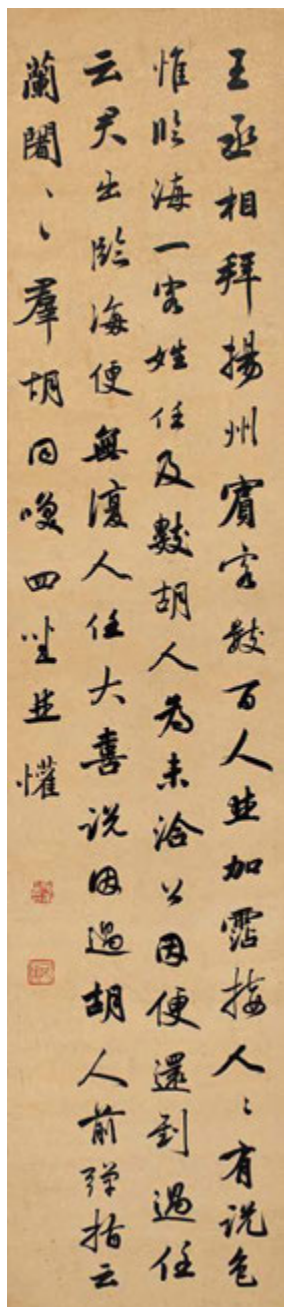 王丞相拜揚州賓客數百人並加霑接人〻有說色
惟臨海一客姓任及數胡人為未洽公因便還到過任
云君出臨海便無復人任大喜說因過胡人前彈指云
蘭闍〻〻羣胡同喚四坐並懽